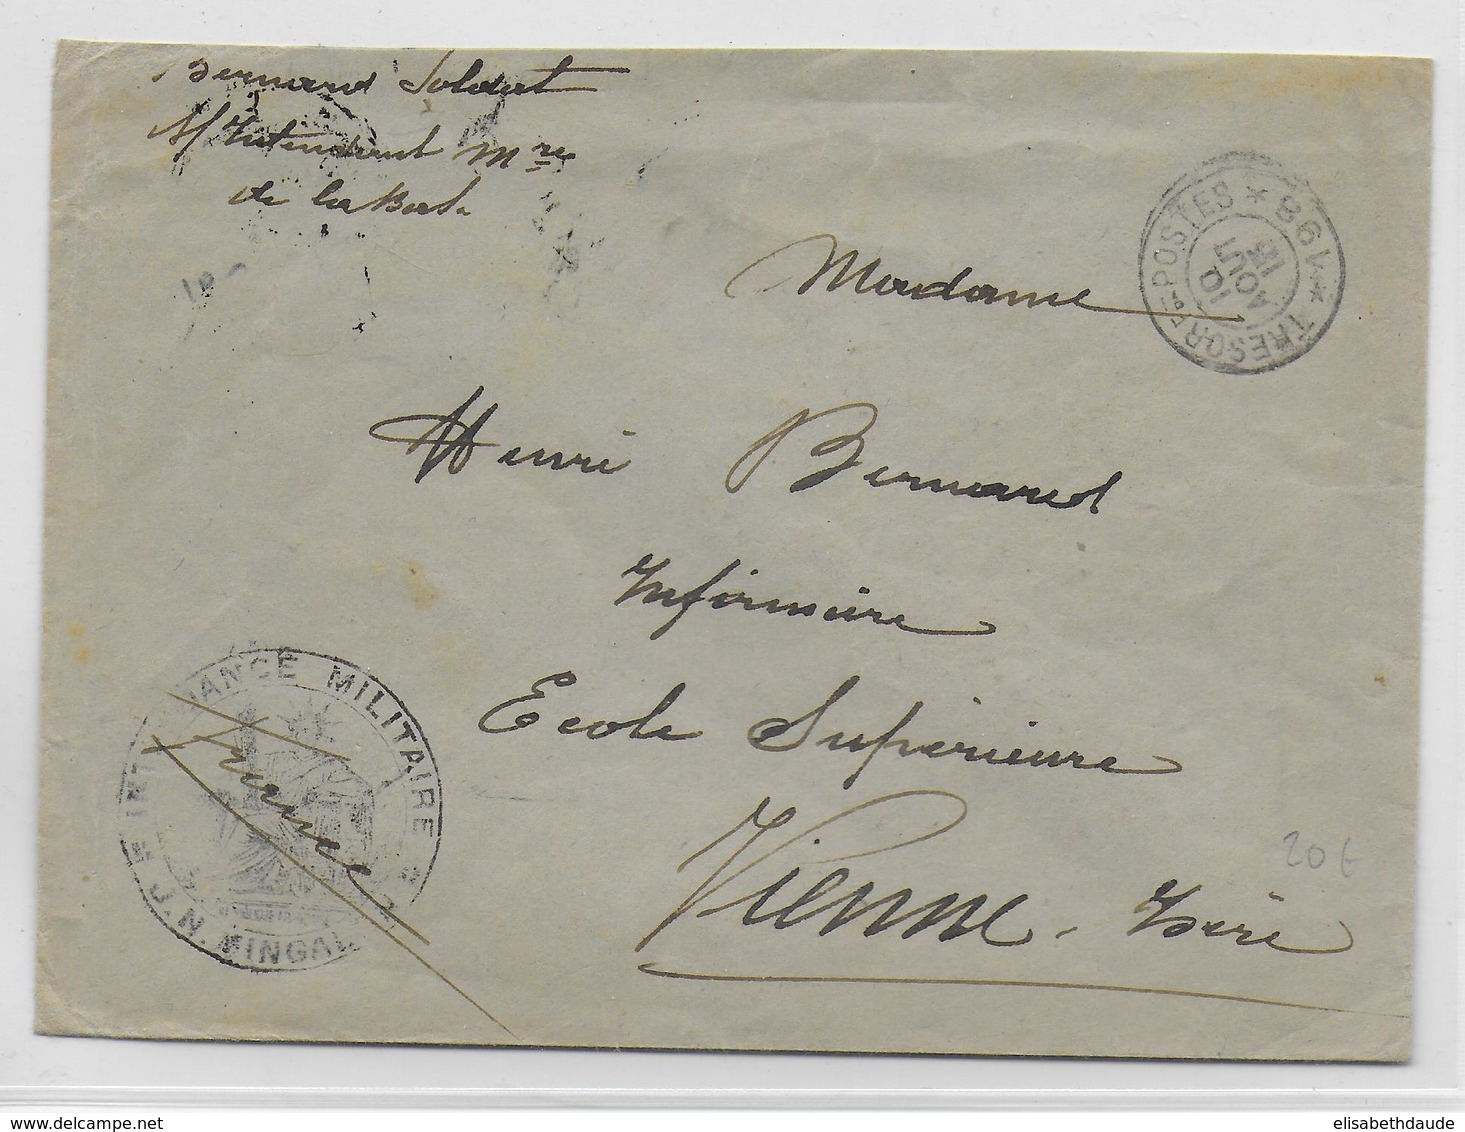 Bernard Soldat
S/ Intendant Mre
de la Base
TRESOR ET POSTES * 198 *
10
AOUT
15
Madame
Henri Bernard
Infirmière
Ecole Supérieure
Vienne - Isère
INTENDANCE MILITAIRE
J. N. FINGAL
France
20 €
elisabethdaude